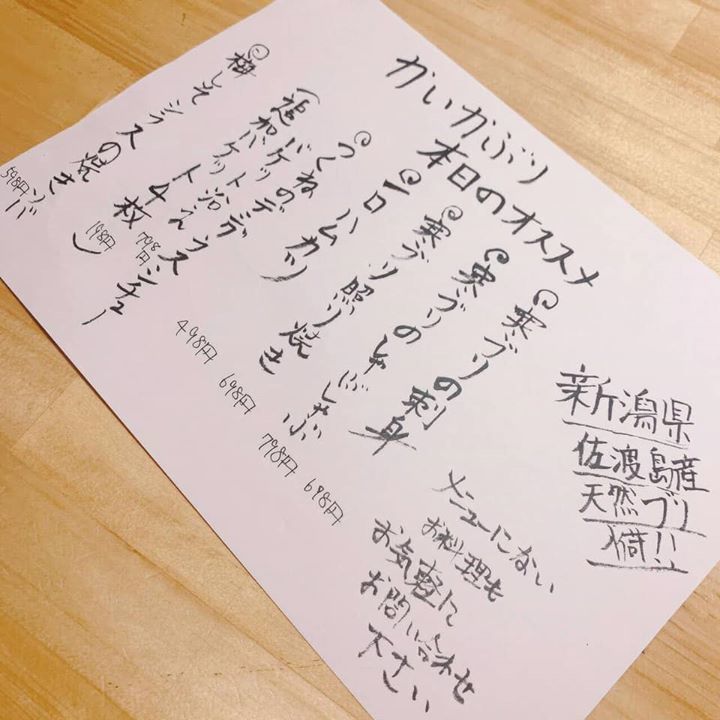 かいかぶり
本日のオススメ
◎寒ブリの刺身 698円
◎寒ブリのしゃぶしゃぶ 798円
◎寒ブリ照り焼き 698円
◎一口ハムカツ 498円
◎つくねのデミ
シチュー 798円
バゲット添え
(追加バゲット4枚 198円)
◎梅しそシラスの焼き 598円
新潟県
佐渡島産
天然ブリ
メニューにない
お料理も
お気軽に
お問い合わせ
下さい